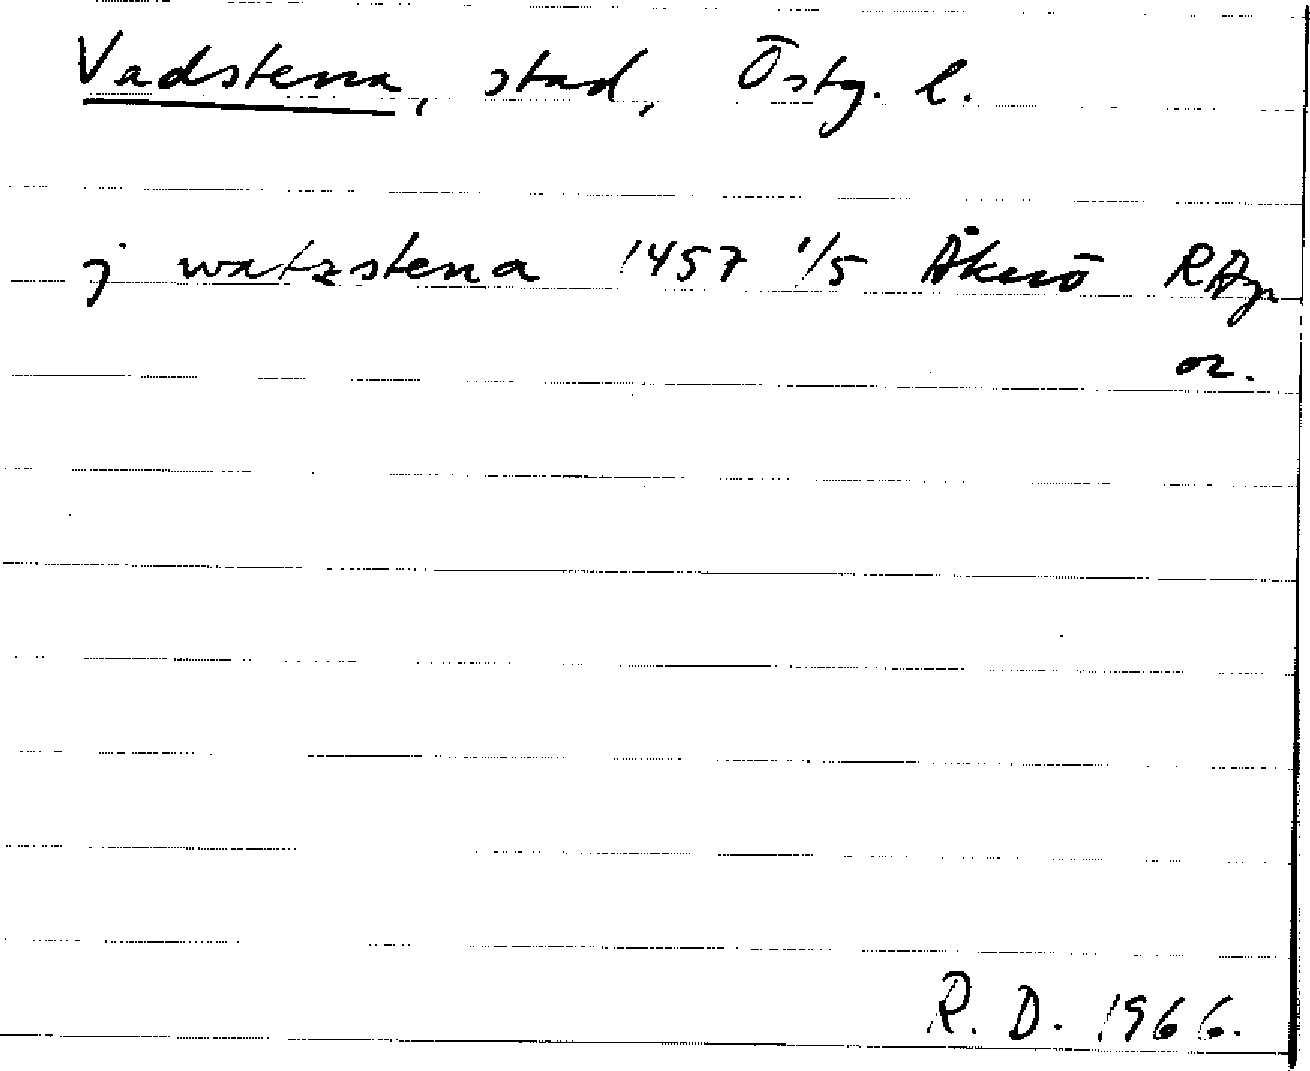 Vadstena, stad, Östg. l.
j watzstena 1457 1/5 Åkerö RAp
or.
R. D. 1966.